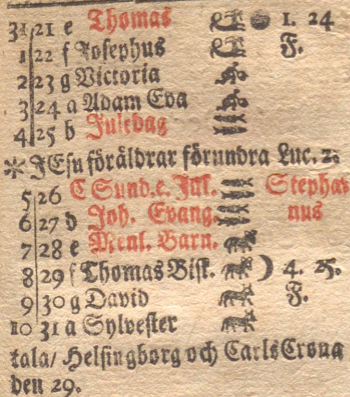 31 21 e Thomas 1. 24
1 22 f Josephus F.
2 23 g Victoria
3 24 a Adam Eva
4 25 b Juledag
JEsu föräldrar förundra Luc. 2.
5 26 C Sund. e. Jul. Stepha
6 27 d Joh. Evang. nus
7 28 e Menl. Barn.
8 29 f Thomas Bisk. 4. 25.
9 30 g David F.
10 31 a Sylvester
tala/ Helsingborg och CarlsCrona
den 29.